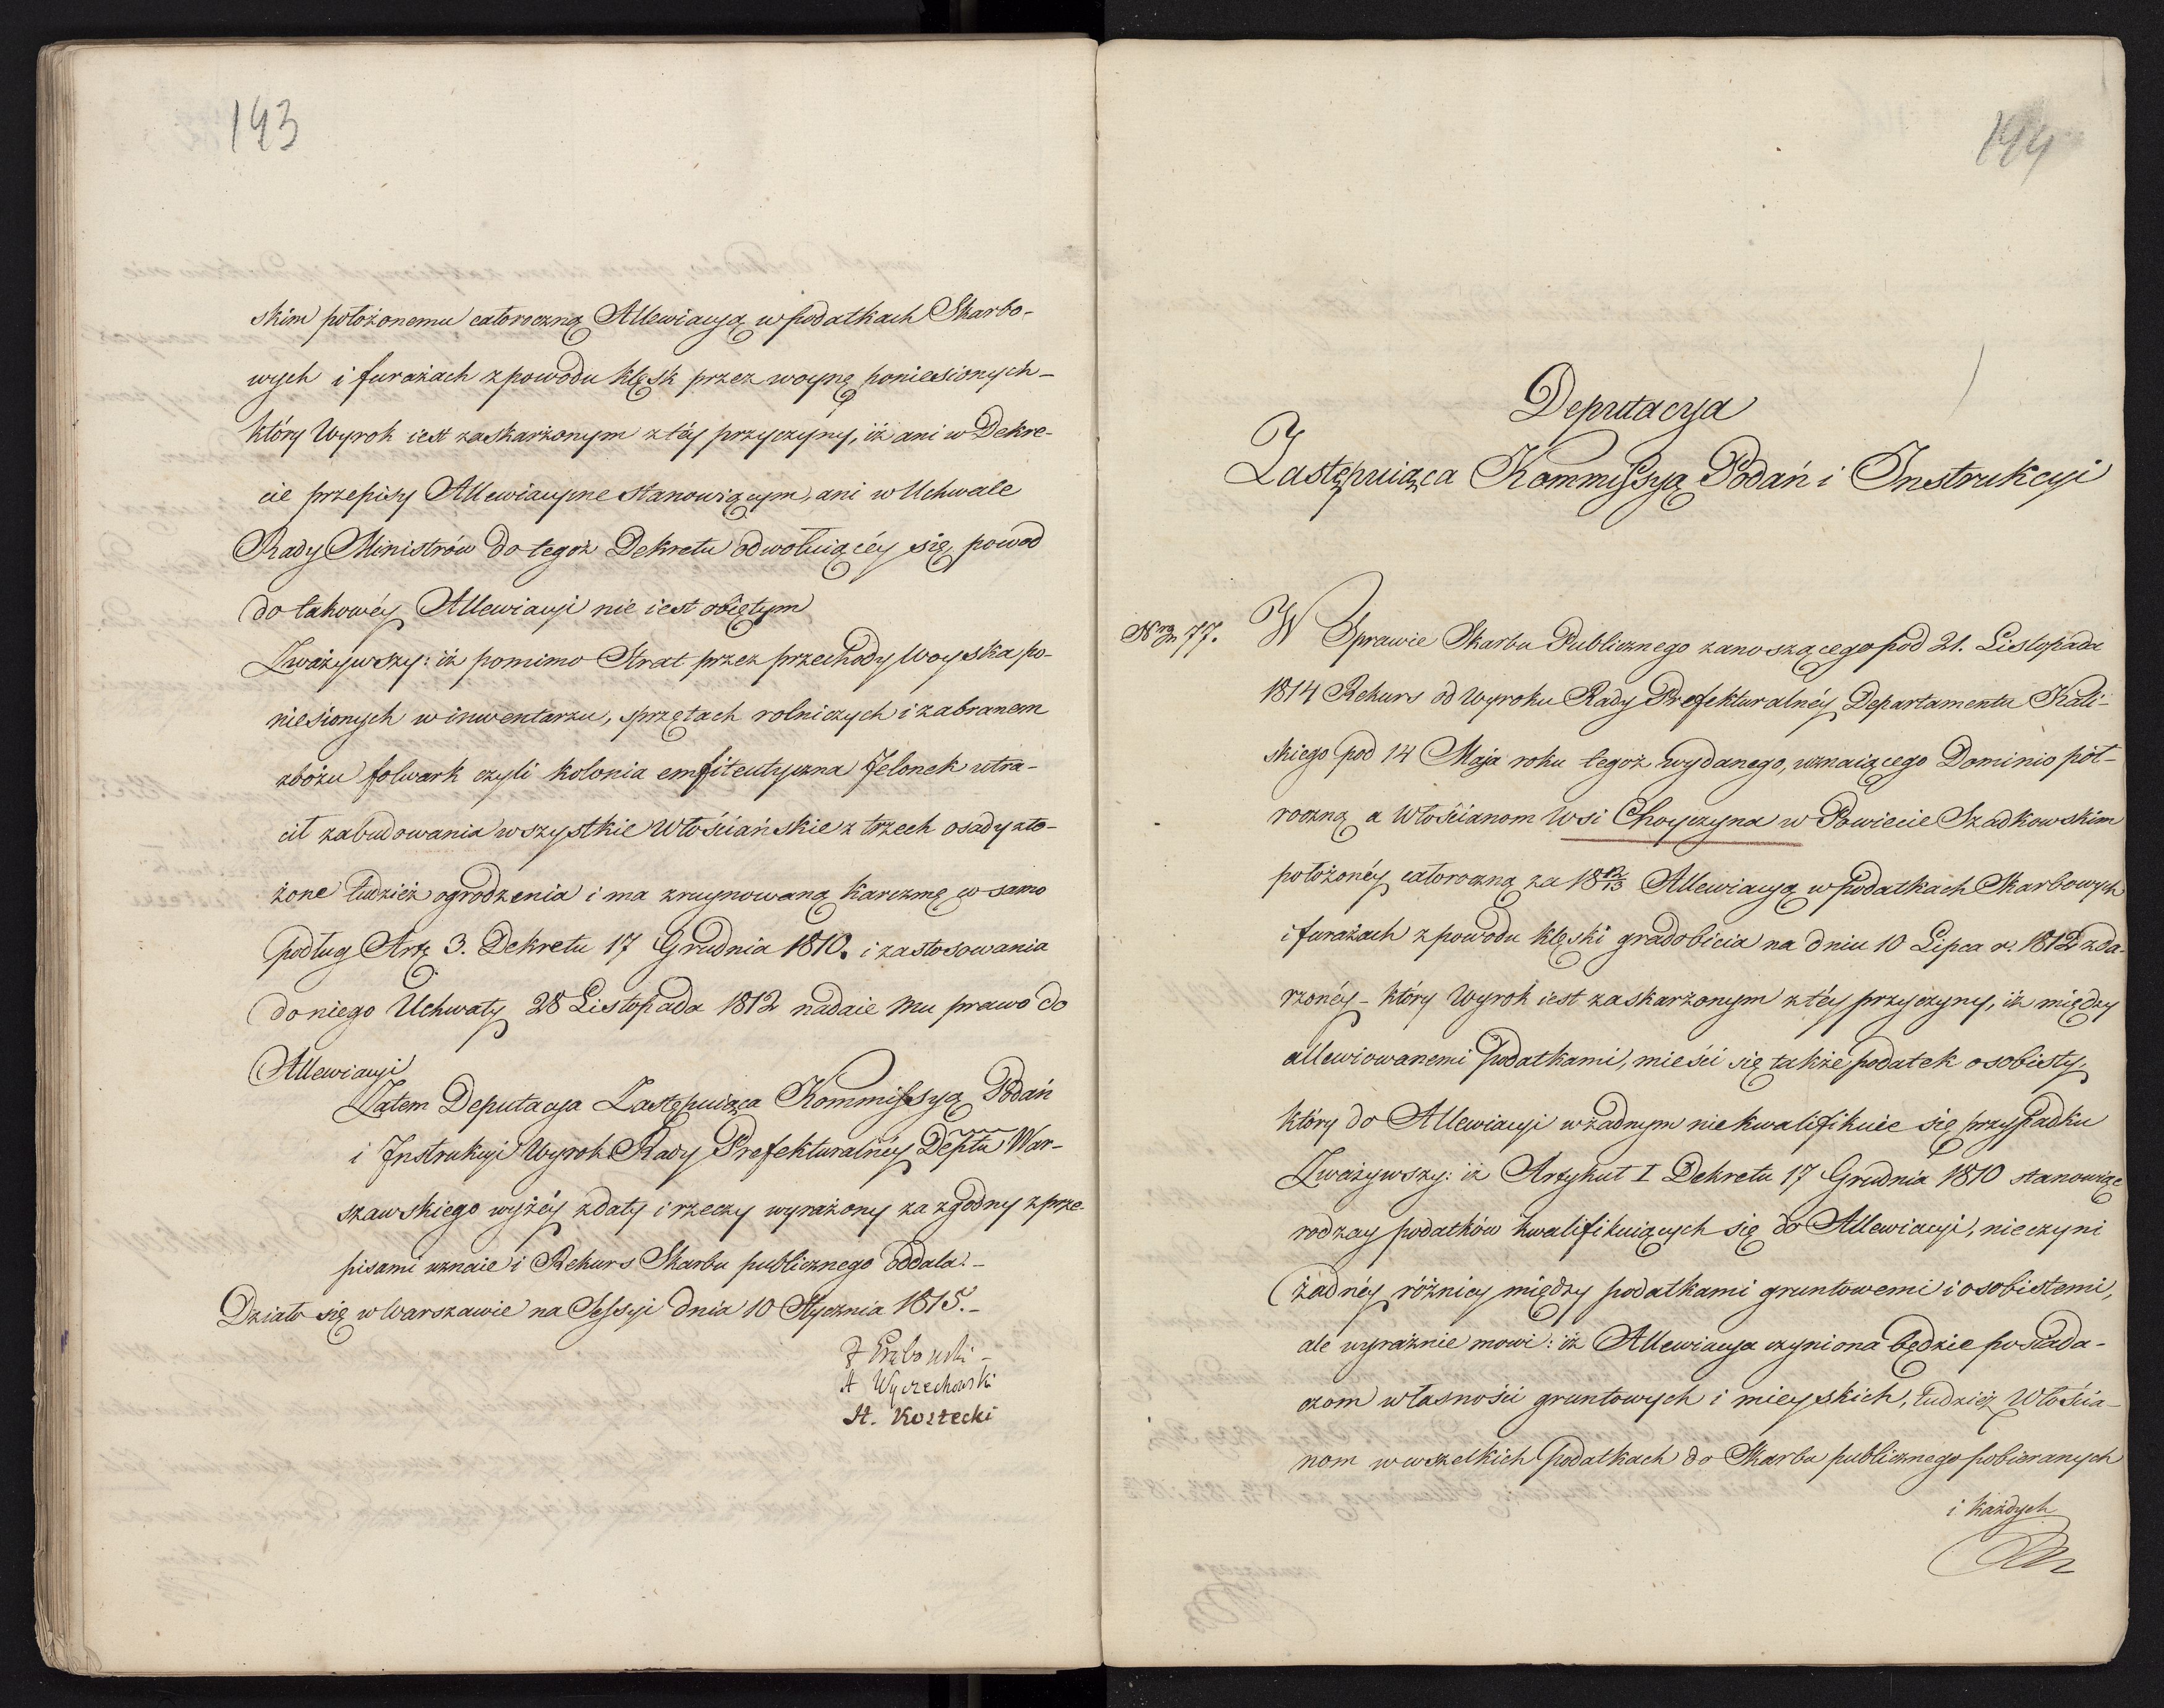 143
skim położonemu całoroczną Allewiacyą w podatkach Skarbo-
wych i furażach z powodu klęsk przez woynę poniesionych -
który Wyrok iest zaskarżonym z téy przyczyny, iż ani w Dekre-
cie przepisy Allewiacyine stanowiącym, ani w Uchwale
Rady Ministrów do tegoż Dekretu odwołuiącéy się, powod
do takowéy Allewiacyi nie iest obiętym
Zważywszy: iż pomimo Strat przez przechody Woyska po-
niesionych w inwentarzu, sprzętach rolniczych i zabranem
zbożu folwark czyli kolonia emfiteutyczna Jelonek utra-
cił zabudowania wszystkie Włościańskie z trzech osady zło-
żone tudzież ogrodzenia i ma zruynowaną karczmę co samo
podług Art 3. Dekretu 17 Grudnia 1810. i zastosowania
do niego Uchwały 28 Listopada 1812 nadaie mu prawo do
Allewiacyi
Zatem Deputacya Zastępuiąca Kommissyą Podań
i Instrukcyi Wyrok Rady Prefekturalnéy Deptu War-
szawskiego wyżéy z daty i rzeczy wyrażony za zgodny z prze-
pisami uznaie i Rekurs Skarbu publicznego oddala. -
Działo się w Warszawie na Sessyi dnia 10 Stycznia 1815. -
A Wyczechowski
St. Kostecki
144
Deputacya
Zastępuiąca Kommissyą Podań i Instrukcyi
Nro 77. W Sprawie Skarbu Publicznego zanoszącego pod 21. Listopada
1814 Rekurs od Wyroku Rady Prefekturalnéy Departamentu Kali-
skiego pod 14 Maja roku tegoż wydanego, uznaiącego Dominio pół-
roczną a Włościanom Wsi Choyczyna w Powiecie Szadkowskim
położonéy całoroczną za 18 12/13 Allewiacyą w podatkach Skarbowych
i furażach z powodu klęski gradobicia na dniu 10 Lipca r. 1812 zda-
rzonéy - który Wyrok iest zaskarżonym z téy przyczyny, iż między
allewiowanemi podatkami, mieści się także podatek osobisty,
który do Allewiacyi w żadnym niekwalifikuie się przypadku
Zważywszy: iż Artykuł I Dekretu 17 Grudnia 1810 stanowiąc
rodzay podatków kwalifikuiących się do Allewiacyi, nie czyni
żadnéy różnicy między podatkami gruntowemi i osobistemi,
ale wyraźnie mowi: iż Allewiacya czyniona będzie posiada-
czom własności gruntowych i mieyskich, tudzież Włościa-
nom w wszelkich podatkach do Skarbu publicznego pobieranych
i każdych